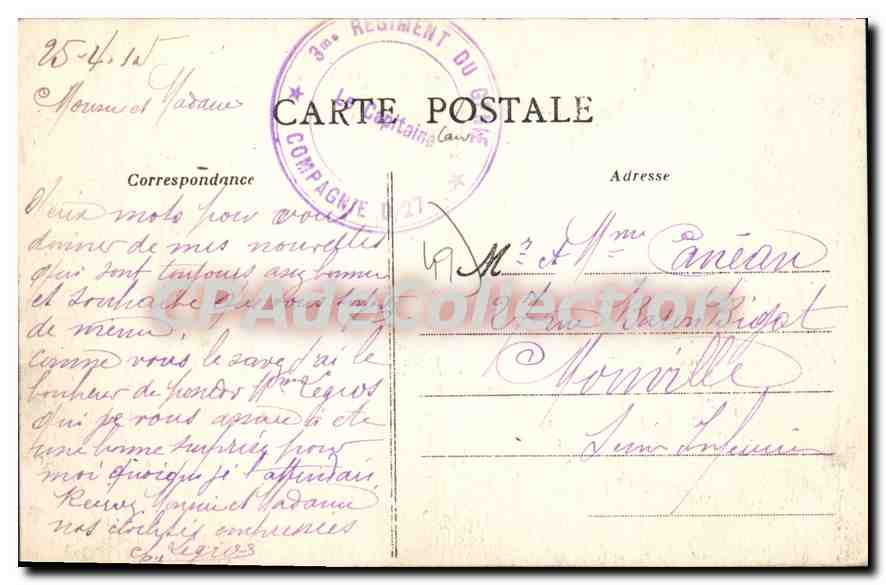 25-4-15
3me REGIMENT DU GÉNIE
Le Capitaine
COMPAGNIE D/27
CARTE POSTALE
Monsieur et Madame
Correspondance
Adresse
Deux mots pour vous
donner de mes nouvelles
qui sont toujours assez bonnes
et souhaite que vous
de meme,
comme vous le savez j'ai le
bonheur de Mme Legros
qui je vous assure a été
une bonne surprise pour
moi quoique je l'attendais
Recevez Monsieur et Madame
nos embrassés
Legros
49
Mr et Mme Canéau
27 rue Bigot
Monville
Seine Inferieure
CPAdeCollection.com